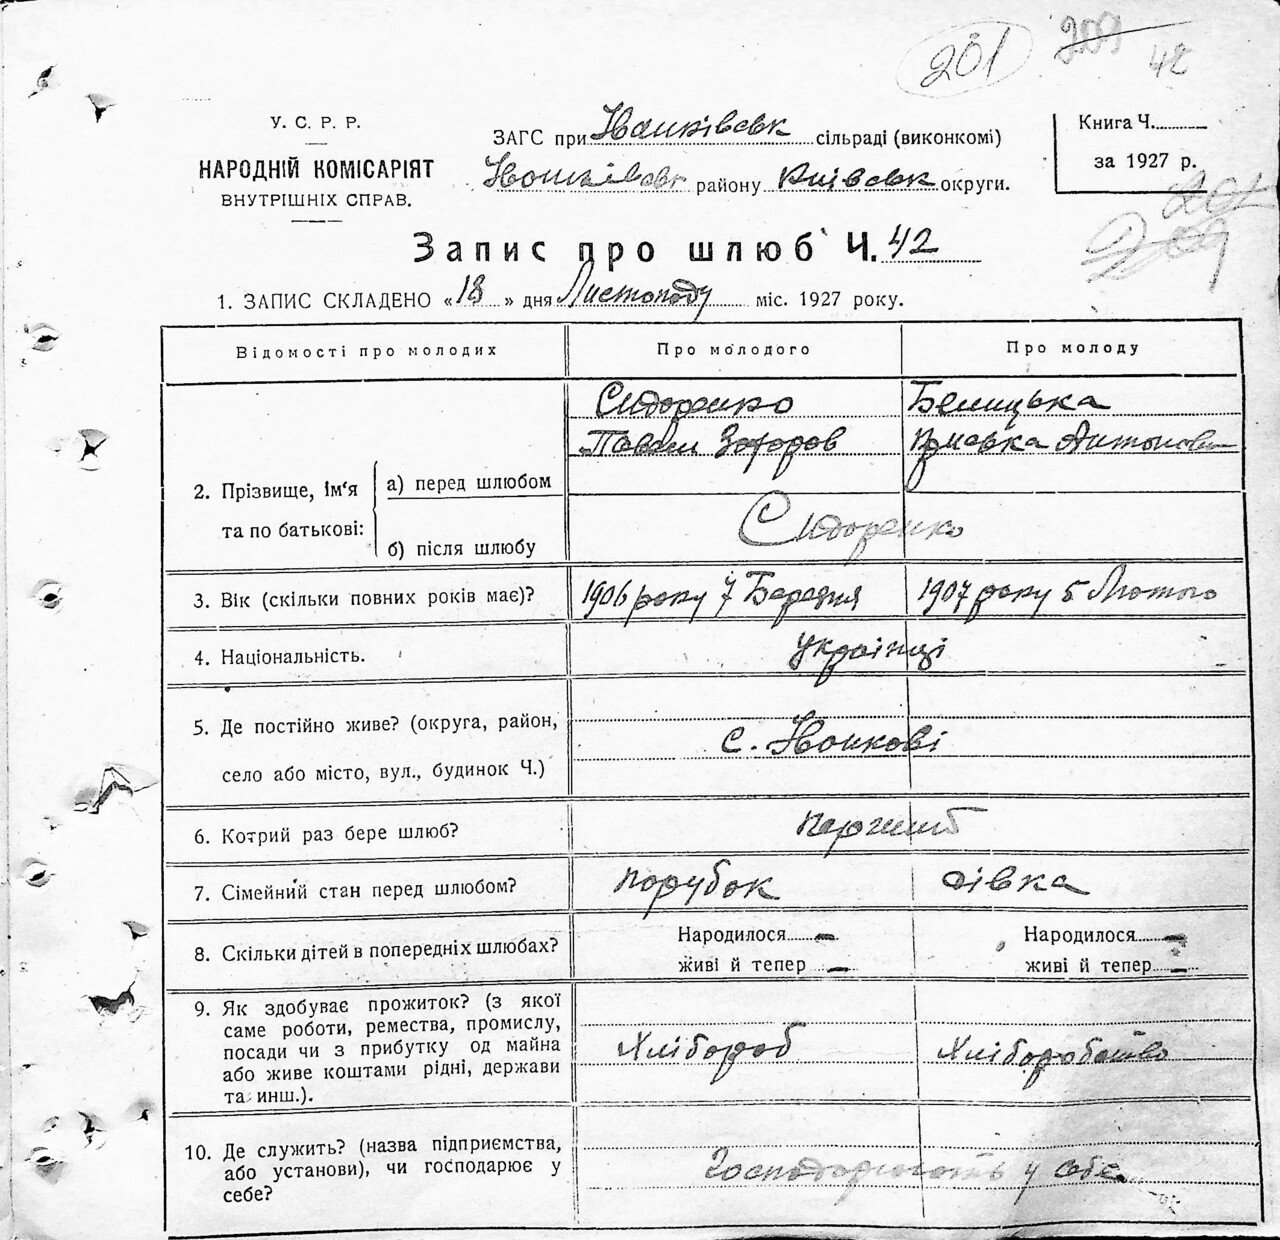 201 209 42
У. С. Р. Р.
НАРОДНІЙ КОМІСАРІЯТ
ВНУТРІШНІХ СПРАВ.
ЗАГС при Іванківськ сільраді (виконкомі)
Іванківськ району Київськ округи.
Книга Ч.
за 1927 р.
209
Запис про шлюб Ч. 42
1. ЗАПИС СКЛАДЕНО «18» дня Листопаду міс. 1927 року.
Відомості про молодих Про молодого Про молоду
Сидоренко
Павел Захаров
Белицька
Приська Антонов
2. Прізвище, ім'я та по батькові:
а) перед шлюбом
б) після шлюбу
Сидоренко
3. Вік (скільки повних років має)? 1906 року 7 Березня 1907 року 5 Лютого
4. Національність. Українці
5. Де постійно живе? (округа, район,
село або місто, вул., будинок Ч.)
с. Іванкові
6. Котрий раз бере шлюб?
7. Сімейний стан перед шлюбом? Парубок дівка
8. Скільки дітей в попередніх шлюбах?
Народилося - Народилося -
живі й тепер - живі й тепер -
9. Як здобуває прожиток? (з якої
саме роботи, ремества, промислу,
посади чи з прибутку од майна
або живе коштами рідні, держави
та инш.).
Хлібороб Хліборобство
10. Де служить? (назва підприємства,
або установи), чи господарює у
себе?
Господарюють у себе